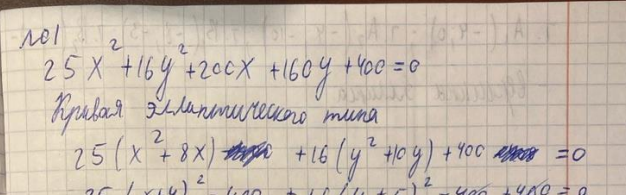 №1
25x² + 16y² + 200x + 160y + 400 = 0
Кривая эллиптического типа
25(x² + 8x) + 16(y² + 10y) + 400 = 0